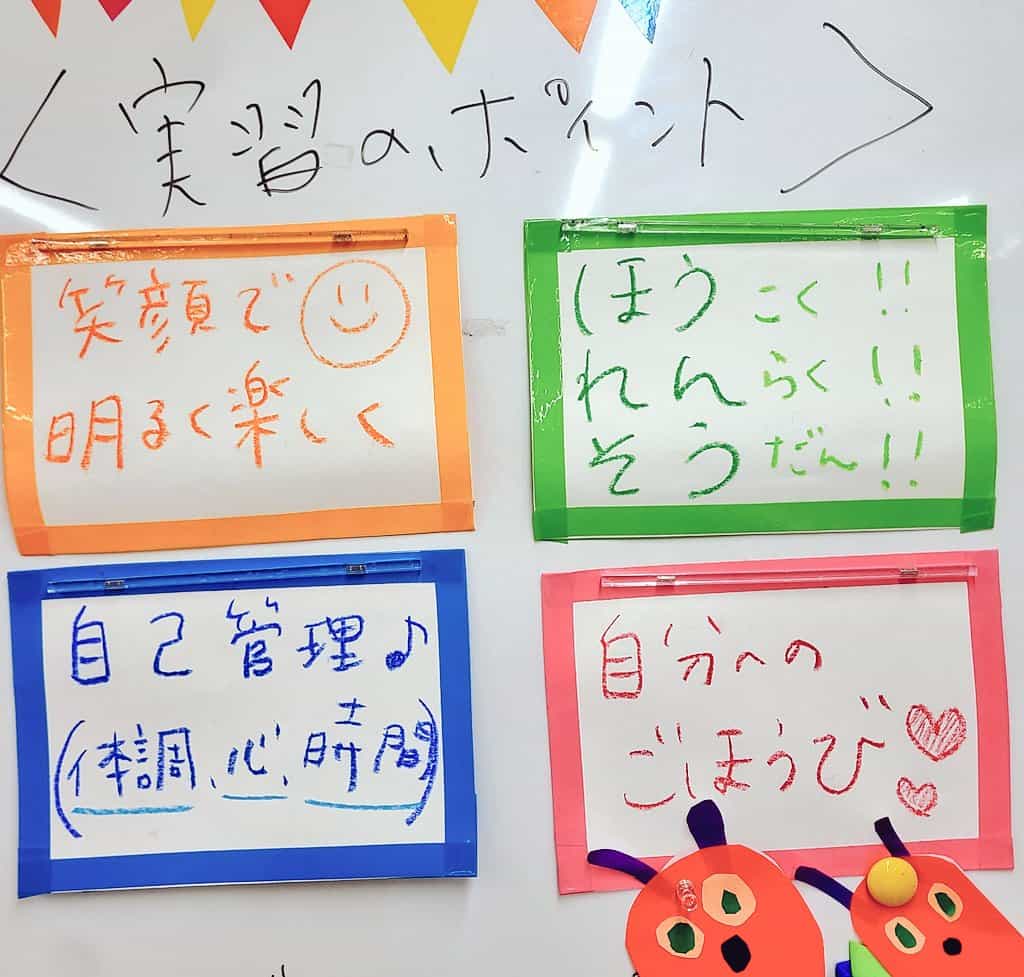 <実習の、ポイント>
笑顔で
明るく楽しく
ほうこく!!
れんらく!!
そうだん!!
自己管理♪
(体調、心、時間)
自分への
ごほうび